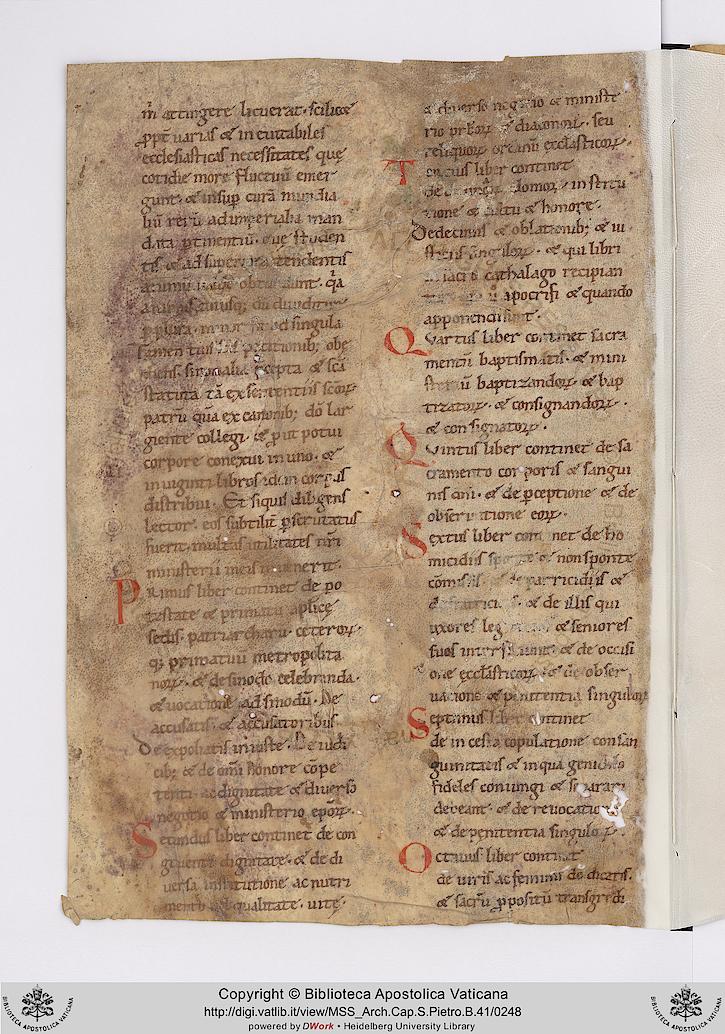 attingere licuerat. scilicę
ꝓpt̄ varias & in euitabiles
ecclesiasticas necessitates quę
cotidie more fluctuū emer
gunt. & insuꝑ curā mundia
liū rerū ad imperialia man
data ꝑtinentiū. quę studen
tis & ad superiora tendentis
animū
singula
statuta tā ex sententiis scōꝝ
patrū quā ex canonib; dō lar
giente collegi. & put potui
corpore conexui in uno. &
in uiginti libros idem corpus
distribui. Et siquis diligens
lector. eos subtiliū ꝑscrutatus
fuerit. multas utilitates nr̄i
ministerii meis inuenerit.
Primus liber continet de po
testate & primatu aplicę
sedis. patriarcharū. ceteroꝝ
q; primatuū metropolita
noꝝ. & de sinodo celebranda.
& uocatione ad sinodū. De
accusatis. & accusatoribus
de expoliatis iniuste. De iudi
cib; & de om̄i honore cōpe
tenti. ac dignitate & diuerso
negotio & ministerio ep̄oꝝ.
Secundus liber continet de con
gruente dignitate. & de di
uersa institutione ac nutri
mento uel qualitate. uitę.
& diuerso negotio & ministe
rio & diaconoꝝ. seu
reliquoꝝ ordinū ecclasticoꝝ.
Tercius liber continet
de domoꝝ. institu
tione & cultu & honore.
De decimis & oblationib; &
& qui libri
in sacro cathalago recipian
apocrifi & quando
apponendi sunt.
Quartus liber continet sacra
mentū baptismatis. & mini
steriū baptizandoꝝ & bap
tizatoꝝ. & consignandoꝝ.
& consignatoꝝ.
Quintus liber continet de sa
cramento corporis & sangui
nis dn̄i. & de ꝑceptione & de
obseruatione eoꝝ.
Sextus liber continet de ho
micidiis sponte & non sponte
cōmissis. & de parricidiis &
de fratricidiis. & de illis qui
uxores & seniores
suos interficiunt. & de occisi
one ecclasticoꝝ. & de obser
uatione & penitentia singuloꝝ
Septimus liber continet
de incesta copulatione consan
guinitatis & in qua genitalis
fideles coniungi & separari
debeant. & de reuocatione
& de penitentia singuloꝝ.
Octauus liber continet
de uiris ac feminis dō dicatis.
& sacrū ꝓpositū transgredi
Copyright © Biblioteca Apostolica Vaticana
http://digi.vatlib.it/view/MSS_Arch.Cap.S.Pietro.B.41/0248
powered by DWork • Heidelberg University Library
BIBLIOTECA APOSTOLICA VATICANA
BIBLIOTECA APOSTOLICA VATICANA